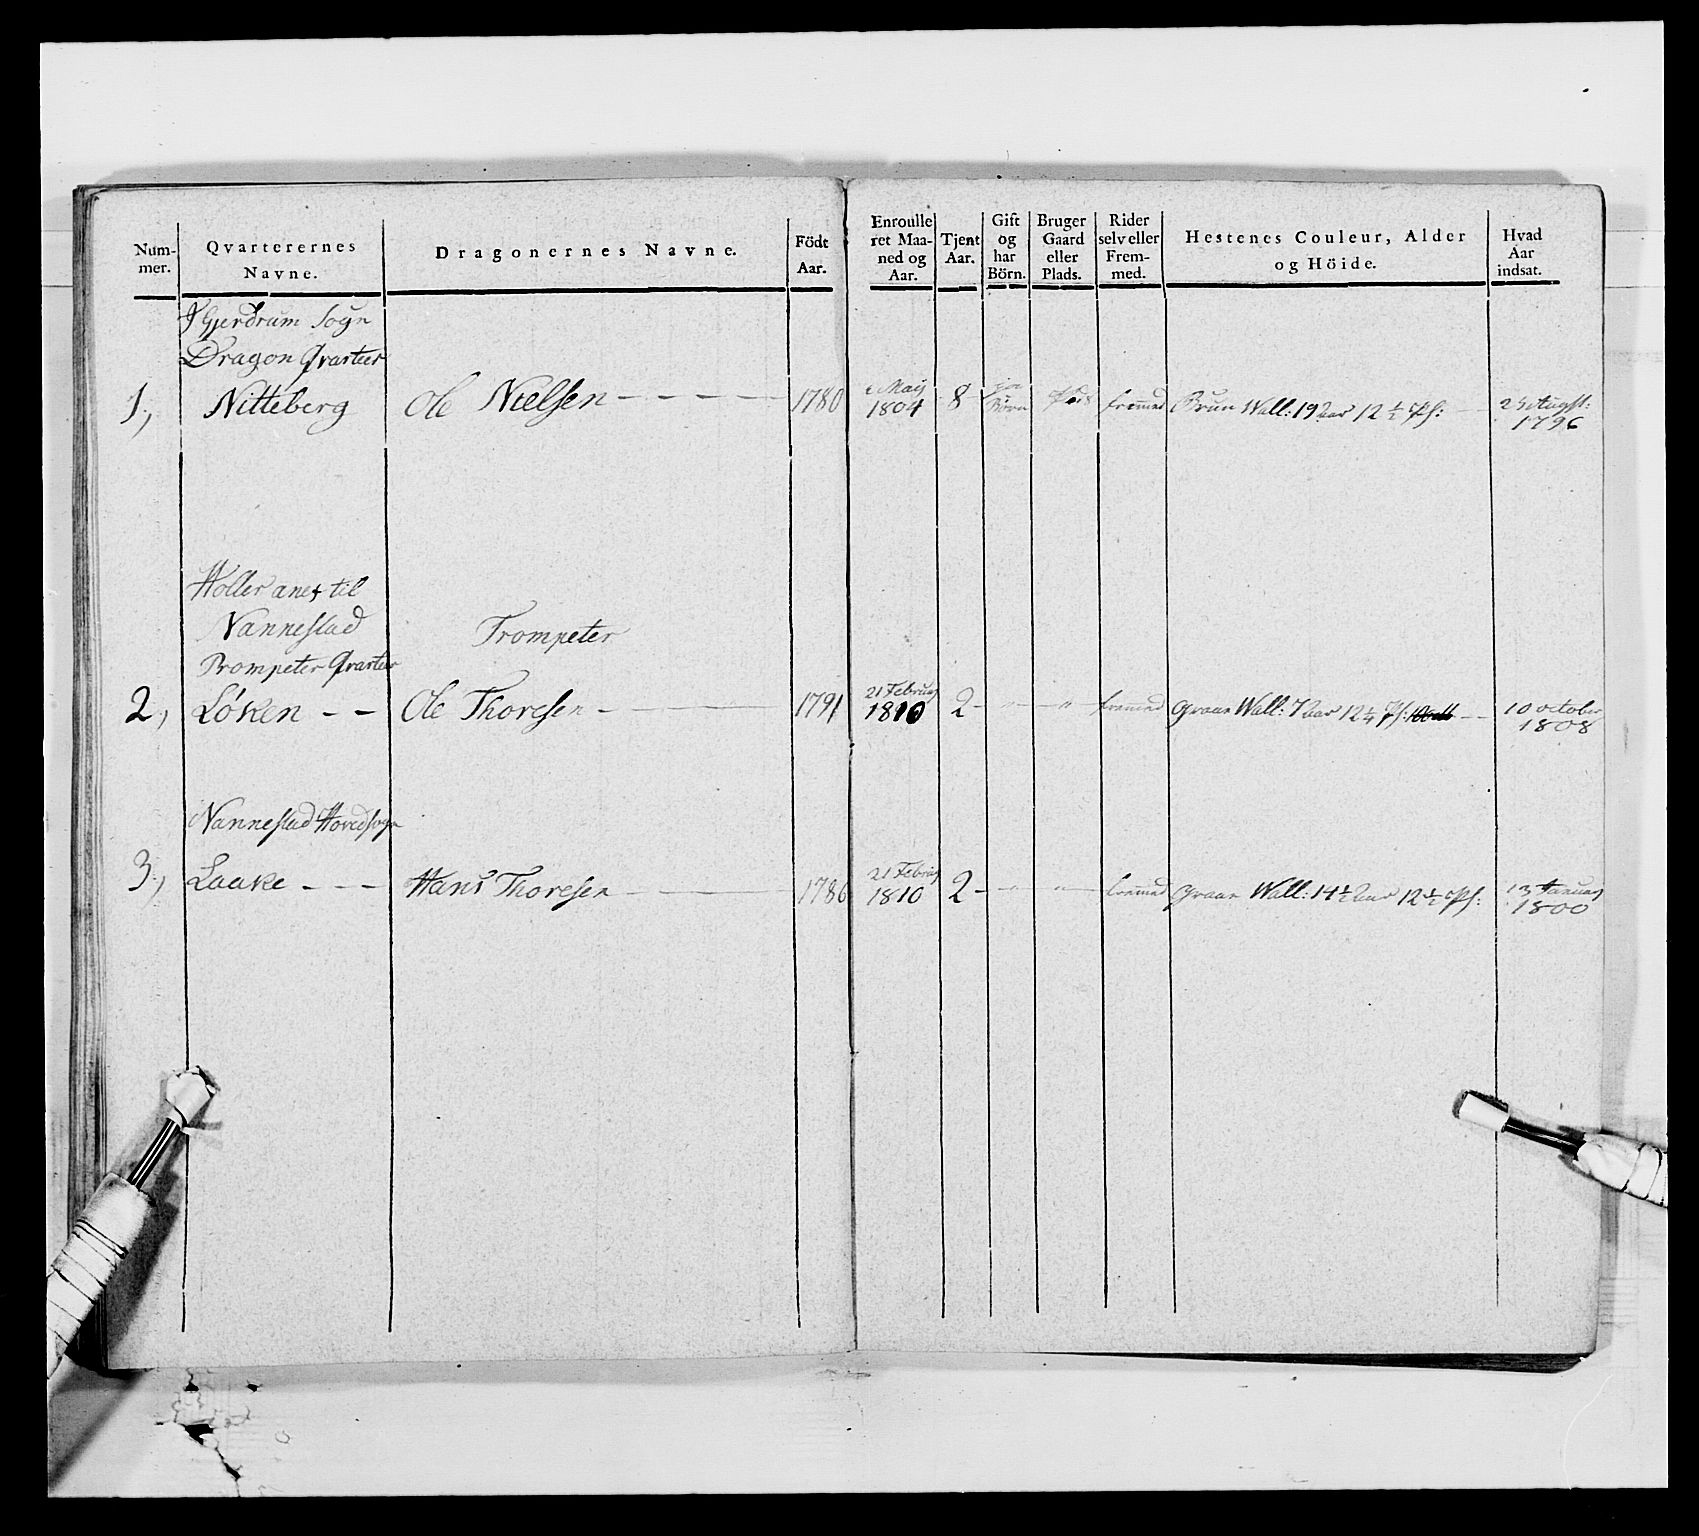 Num-
mer.
Qvarterernes
Navne.
Dragonernes Navne.
Födt
Aar.
Enroulle
ret Maa-
ned og
Aar.
Tjent
Aar.
Gift
og
har
Börn.
Bruger
Gaard
eller
Plads.
Rider
selv eller
Frem-
med.
Hestenes Couleur, Alder
og Höide.
Hvad
Aar
indsat.
I Gjerdrum Sogn
Dragon Qvarteer
1, Nitteberg Ole Nielsen 1780 Maij 1804 8 Börn fremmed Brun Wall: 19 Aar 12 ½ Qt: Augst: 1796
Holler anex til
Nannestad
Trompeter
Trompeter Qvarteer
2, Løken Ole Thoresen 1791 21 Februarj 1810 2 " " fremmed Graae Wall: 7 Aar 12 ¼ Qt: 10 october 1808
Nannestad Hovedsogn
3, Laake Hans Thoresen 1786 21 Februarj 1810 2 " " fremmed Graae Wall: 14 ½ Aar 12 ½ Qt: 13 Januarj 1800